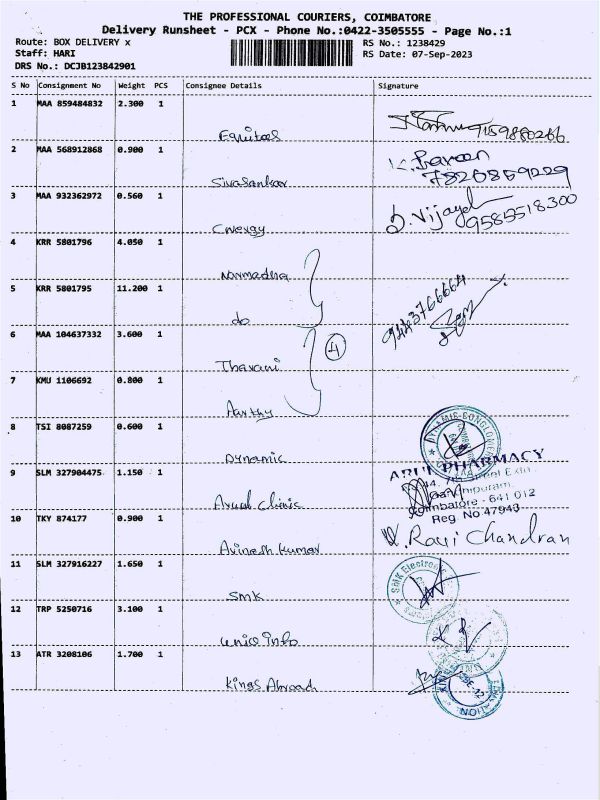 THE PROFESSIONAL COURIERS, COIMBATORE
Delivery Runsheet - PCX - Phone No.:0422-3505555 - Page No.:1
Route: BOX DELIVERY x
RS No.: 1238429
Staff: HARI
RS Date: 07-Sep-2023
DRS No.: DCJB123842901
S No Consignment No Weight PCS Consignee Details Signature
1 MAA 859484832 2.300 1
Equitas
2 MAA 568912868 0.900 1
K. Praveen
7826859229
Sivasankar
3 MAA 932362972 0.560 1
D. Vijayal
9585518300
4 KRR 5801796 4.050 1
Narmadha
5 KRR 5801795 11.200 1
9443766664
do
6 MAA 104637332 3.600 1
4
Tharani
7 KMU 1106692 0.800 1
Aarthy
8 TSI 8087259 0.600 1
Dynamic
9 SLM 327904475 1.150 1
PHARMACY
Coimbatore - 641 012
Reg. No.47943
Arush Clinic
10 TKY 874177 0.900 1
Ravi Chandran
Avinash Kumar
11 SLM 327916227 1.650 1
SMK Electronic
SMK
12 TRP 5250716 3.100 1
Uniq Info
13 ATR 3208106 1.700 1
Kings Abroad